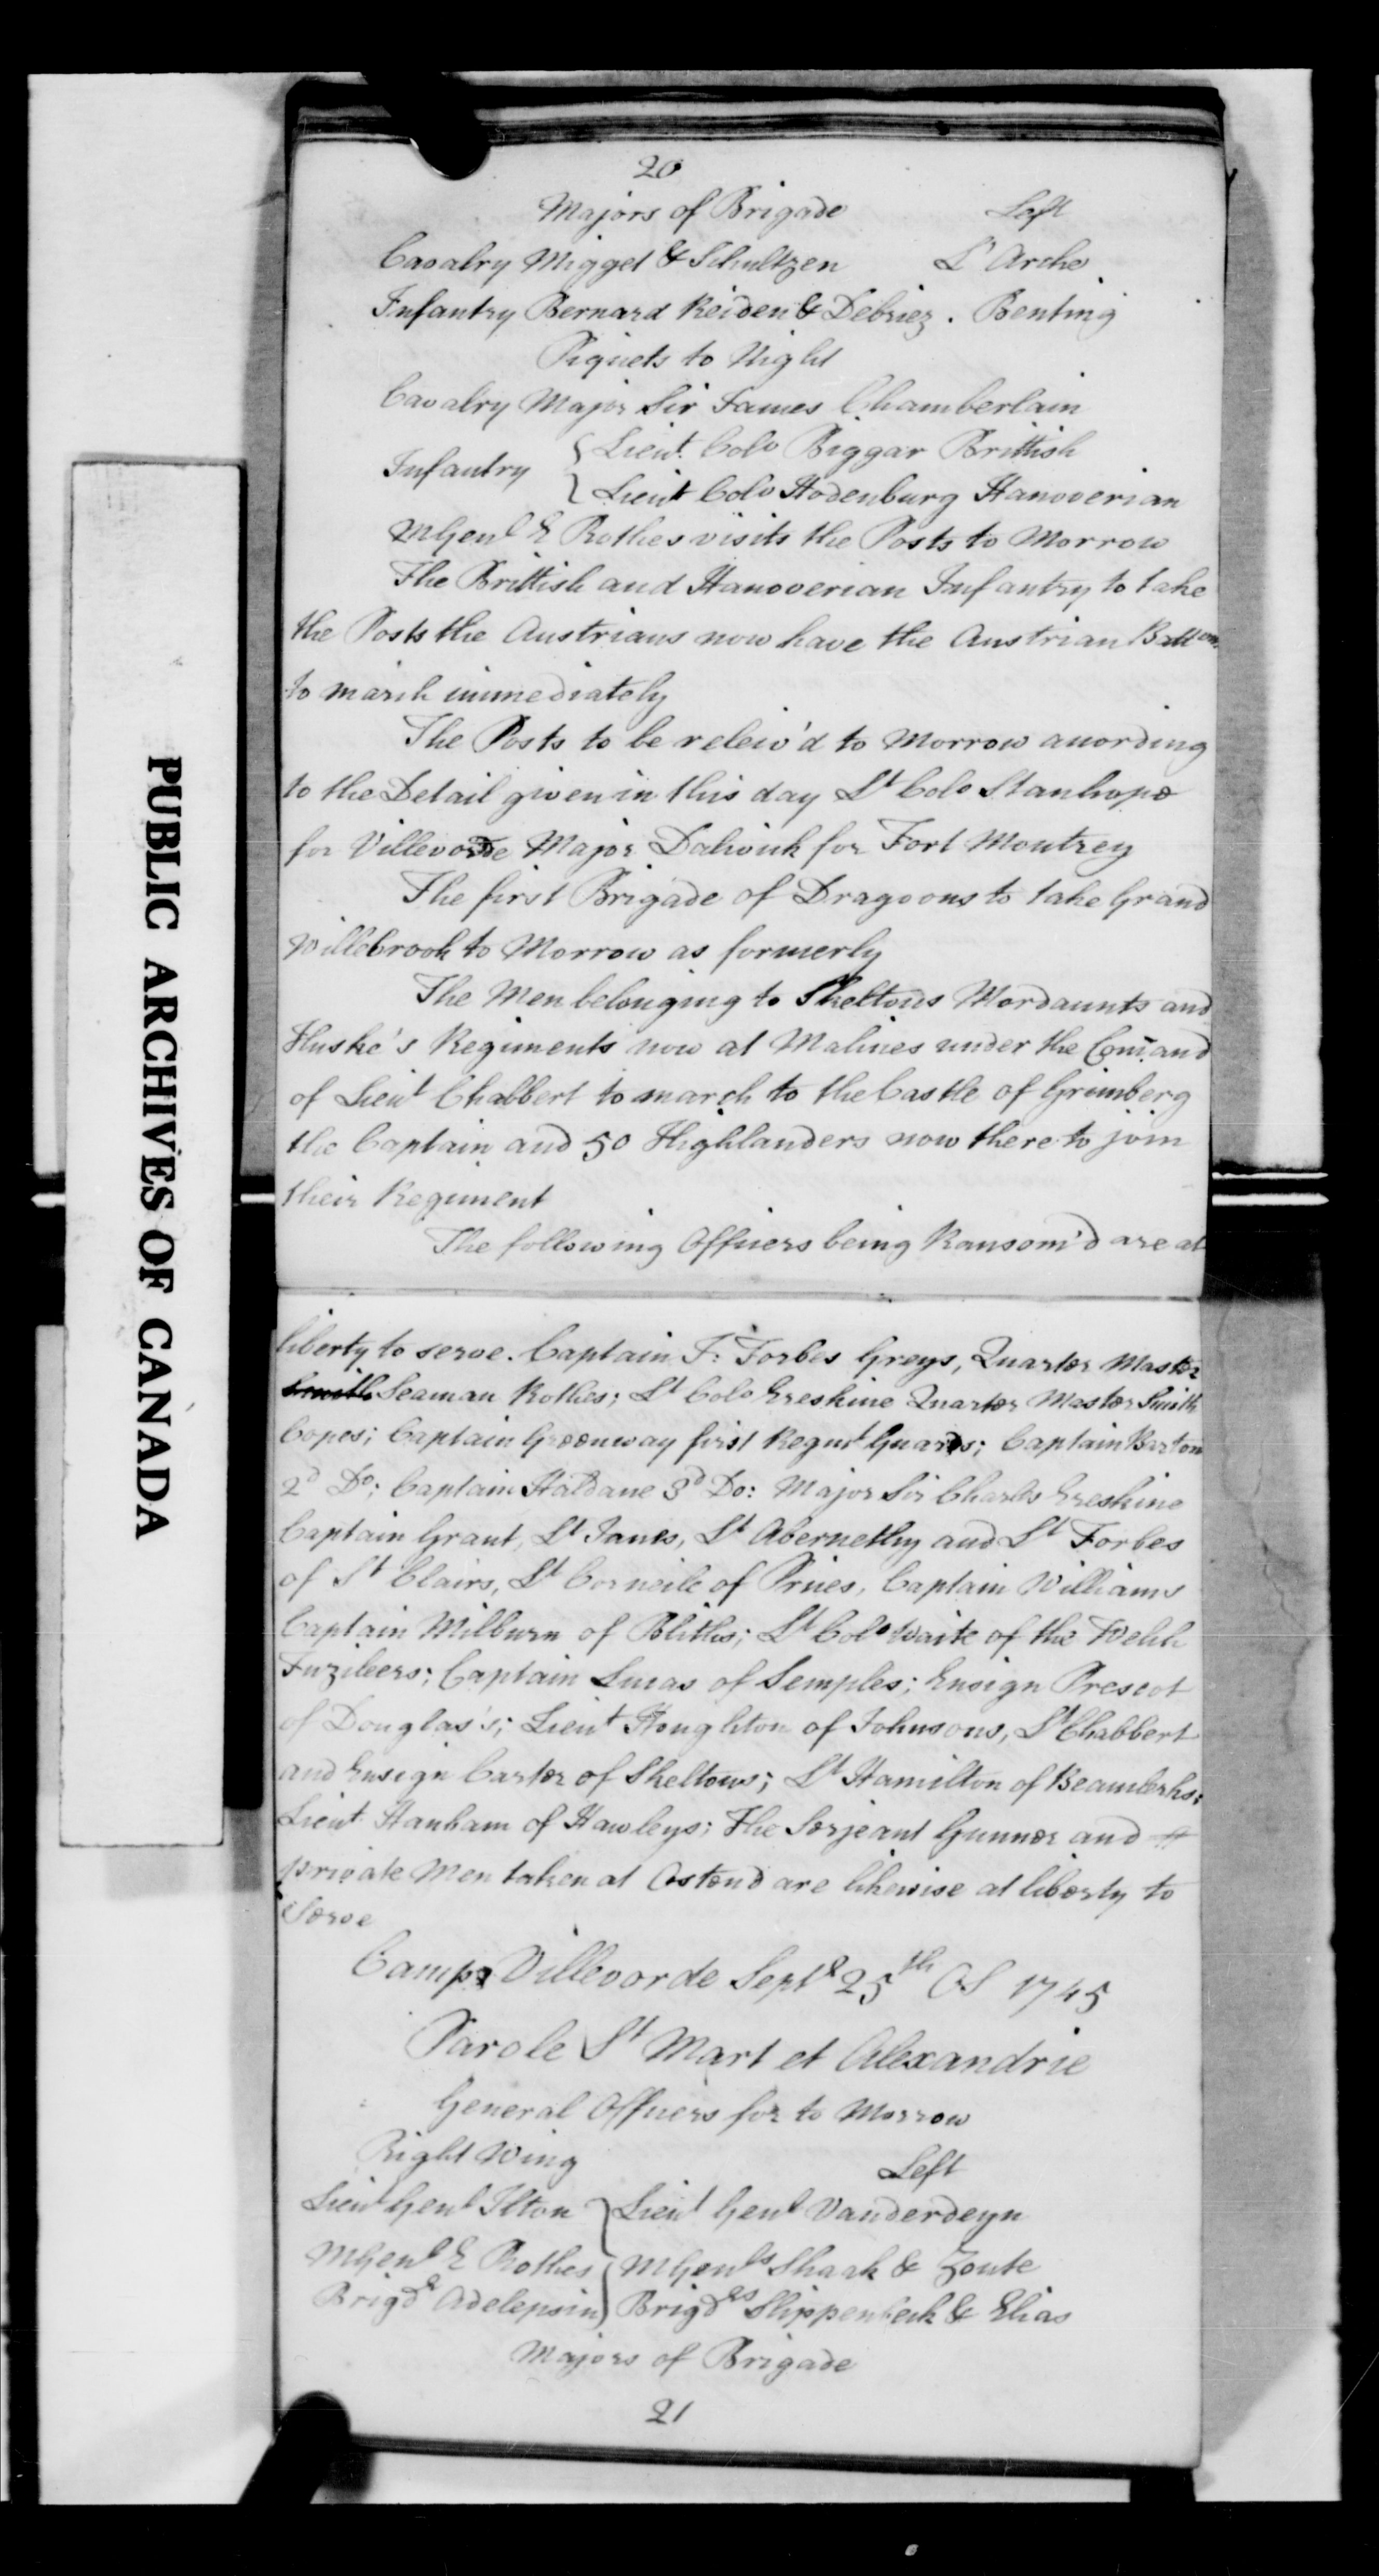 20
Majors of Brigade Left
Cavalry Migget & Schultzen L'Arche
Infantry Bernard Reiden & Debriez. Benting
Piquets to Night
Cavalry Major Sir James Chamberlain
Infantry { Lieut. Colo Biggar Brittish
{ Lieut Colo Hodenburg Hanoverian
MGenl E Rothes visits the Posts to Morrow
The Brittish and Hanoverian Infantry to take
the Posts the Austrians now have the Austrian Battons.
to march immediately
The Posts to be releiv'd to Morrow according
to the Detail given in this day Lt Colo Stanhope
for Villevorde Major for Fort Montrey
The first Brigade of Dragoons to take Grand
Willebrook to Morrow as formerly
The Men belonging to Skeltons Mordaunts and
Huske's Regiments now at Malines under the Comand
of Lieut Chabbert to march to the Castle of Grimberg
the Captain and 50 Highlanders now there to join
their Regiment
The following Officers being Ransom'd are at
liberty to serve. Captain F: Forbes Greys, Quarter Master
Smith Seaman Rothes; Lt Colo Ereskine Quarter Master Smith
Copes; Captain Greenway first Regmt Guards; Captain Barton
2d Do; Captain Haldane 3d Do: Major Sir Charles Ereskine
Captain Grant, Lt Janes, Lt Abernethy and Lt Forbes
of St Clairs, Lt Corneile of Prices, Captain Williams
Captain Milburn of Bliths; Lt Colo Waite of the Welch
Fuzileers; Captain Lucas of Semples; Ensign Prescot
of Douglas's; Lieut Houghton of Johnsons, Lt Chabbert
and Ensign Carter of Skeltons; Lt Hamilton of
Lieut Hanham of Hawleys; The Serjeant Gunner and
private Men taken at Ostend are likewise at liberty to
Serve
Camp Villevorde Septr 25th OS 1745
Parole St Mart et Alexandrie
General Officers for to Morrow
Right Wing Left
Lieut Genl Ilton } Lieut Genl Vanderdeyn
MGenl E Rothes } MGenls Shack & Zoute
Brigdr Adelepsin } Brigdrs Slippenbeck & Elias
Majors of Brigade
21
PUBLIC ARCHIVES OF CANADA